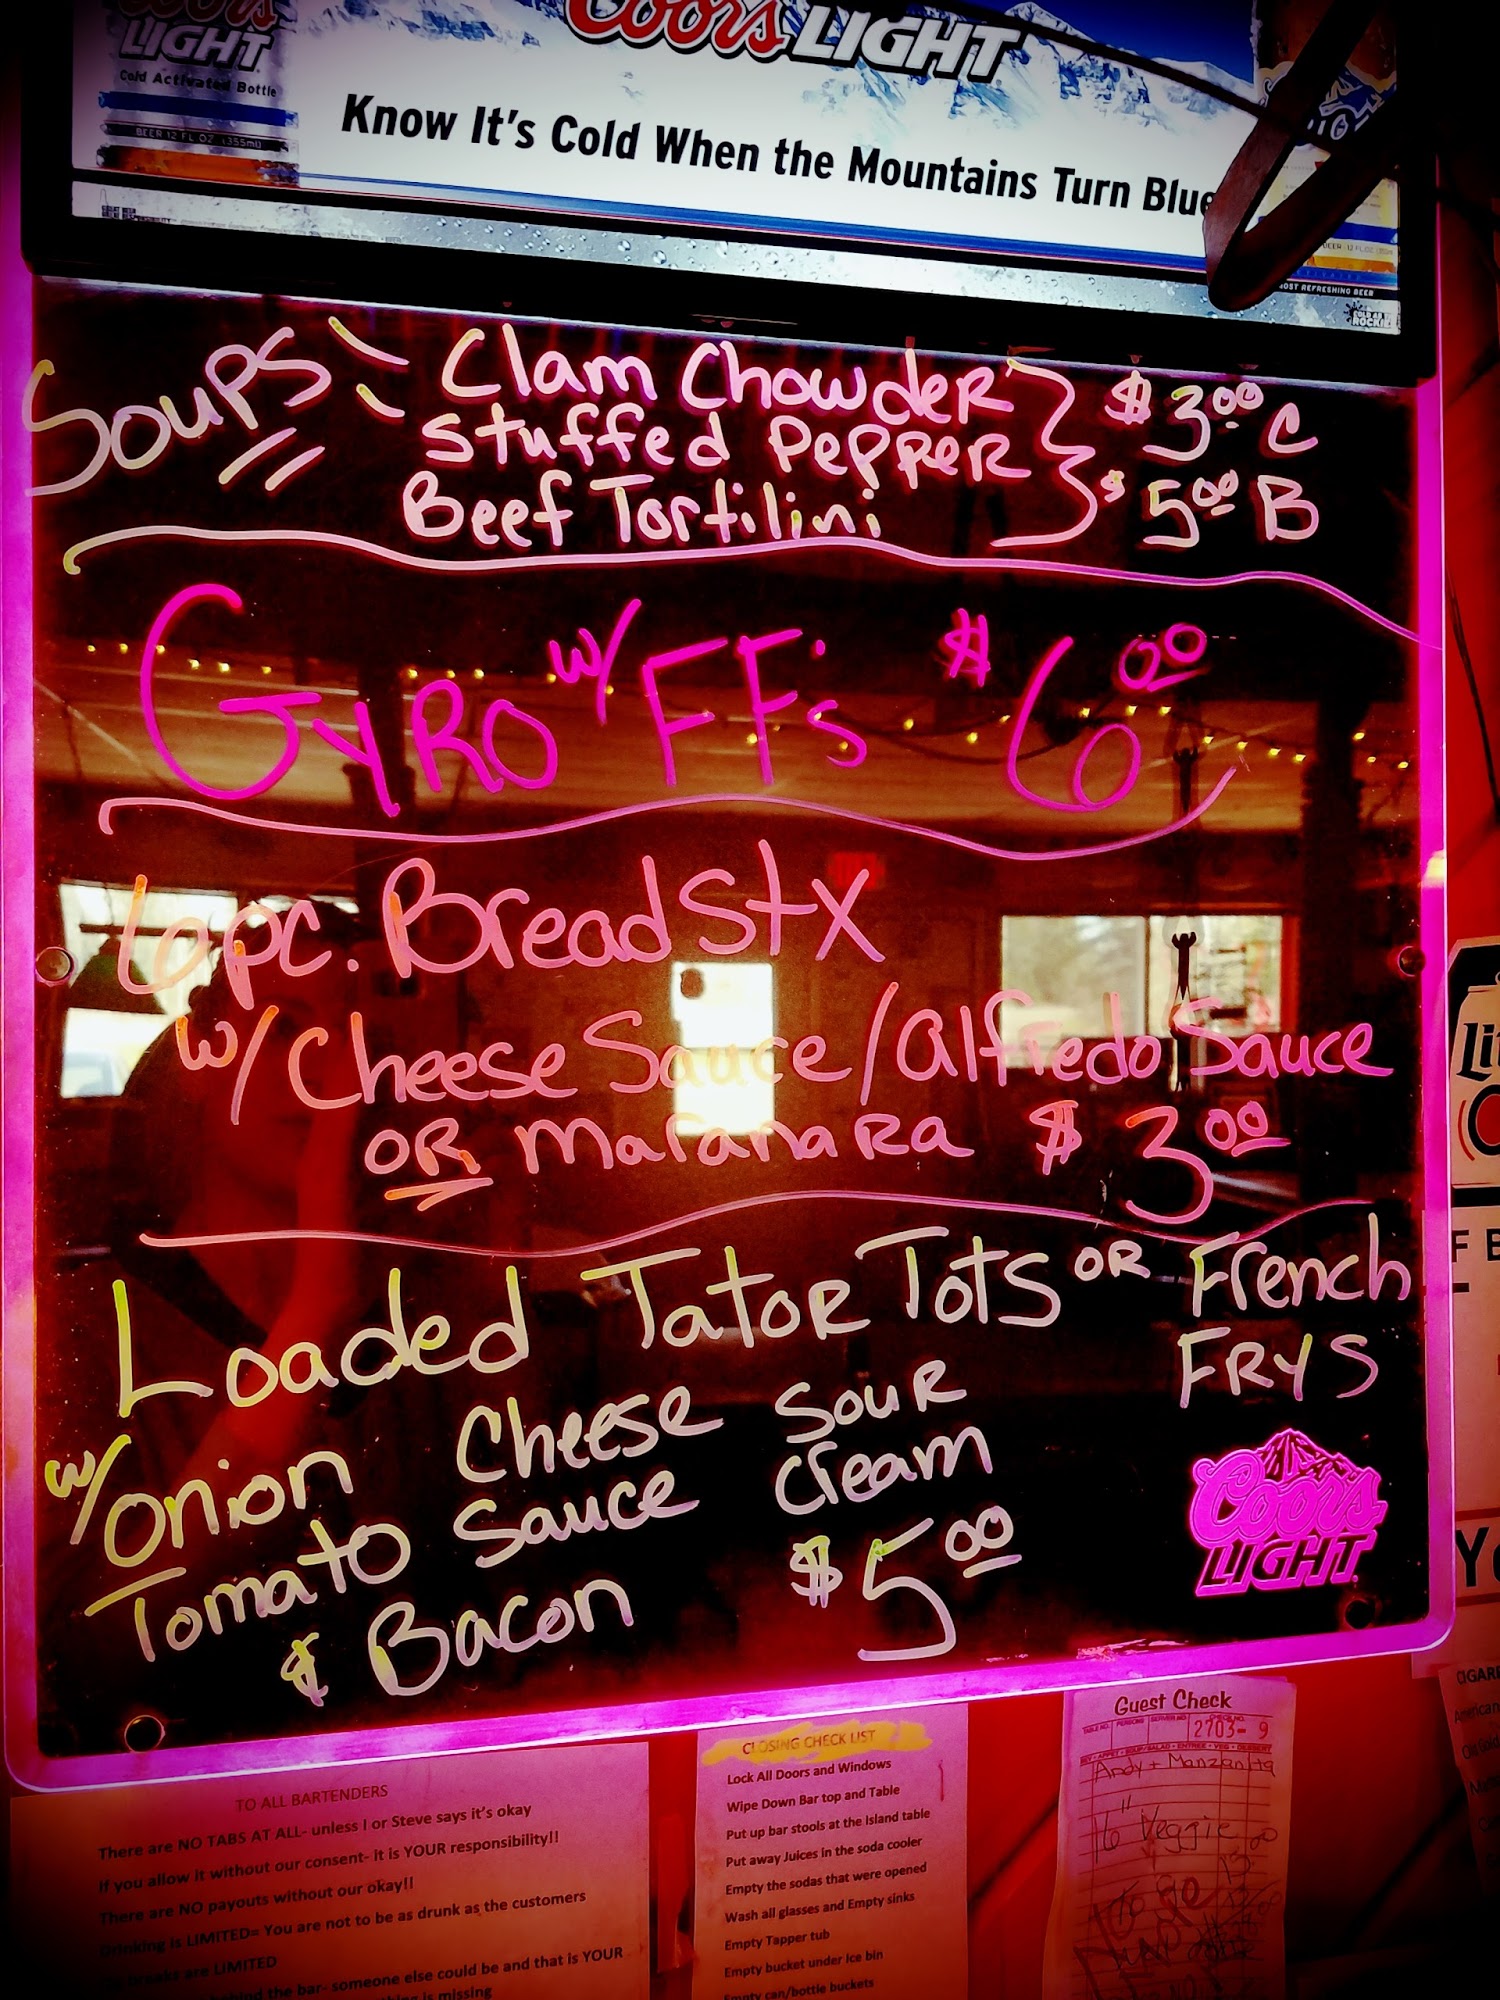 Coors LIGHT
Coors
LIGHT
Cold Activated Bottle
BEER 12 FL OZ (355ml)
Know It's Cold When the Mountains Turn Blue
MOST REFRESHING BEER
Soups: Clam Chowder $3.00 C
Stuffed Pepper
Beef Tortilini $5.00 B
Gyro w/ FF's $6.00
6 pc. Bread Stx
w/ Cheese Sauce / Alfredo Sauce
OR Maranara $3.00
Loaded Tator Tots OR French
FRYS
w/ Onion Cheese Sour
Tomato Sauce Cream
& Bacon $5.00
Coors
LIGHT
TO ALL BARTENDERS
There are NO TABS AT ALL- unless I or Steve says it's okay
If you allow it without our consent- it is YOUR responsibility!!
There are NO payouts without our okay!!
Drinking is LIMITED= You are not to be as drunk as the customers
breaks are LIMITED
behind the bar- someone else could be and that is YOUR
is missing
CLOSING CHECK LIST
Lock All Doors and Windows
Wipe Down Bar top and Table
Put up bar stools at the island table
Put away Juices in the soda cooler
Empty the sodas that were opened
Wash all glasses and Empty sinks
Empty Tapper tub
Empty bucket under ice bin
Empty can/bottle buckets
Guest Check
2703- 9
Andy + Manzanita
16" Veggie